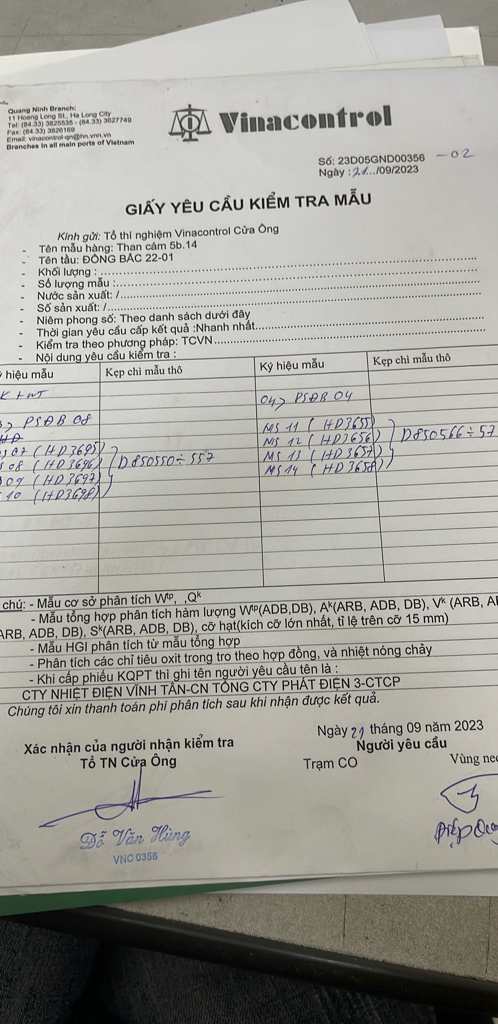 Quang Ninh Branch:
11 Hoang Long St., Ha Long City
Tel: (84.33) 3825535 - (84.33) 3627749
Fax: (84.33) 3826169
Email: vinacontrol-qn@hn.vnn.vn
Branches in all main ports of Vietnam
Vinacontrol
Số: 23D05GND00356 -02
Ngày :21.../09/2023
GIẤY YÊU CẦU KIỂM TRA MẪU
Kính gửi: Tổ thí nghiệm Vinacontrol Cửa Ông
- Tên mẫu hàng: Than cám 5b.14
- Tên tàu: ĐÔNG BẮC 22-01
- Khối lượng :
- Số lượng mẫu :
- Nước sản xuất: /
- Số sản xuất: /
- Niêm phong số: Theo danh sách dưới đây
- Thời gian yêu cầu cấp kết quả :Nhanh nhất
- Kiểm tra theo phương pháp: TCVN
- Nội dung yêu cầu kiểm tra :
hiệu mẫu Kẹp chì mẫu thô Ký hiệu mẫu Kẹp chì mẫu thô
04> PSĐB 04
PSĐB 08
MS 11 ( HD3655)
07 (HD3695) MS 12 ( HD3656) D850566÷57
08 (HD3696) D850550÷557 MS 13 ( HD3657)
09 (HD3697) MS 14 ( HD3658)
10 (HD3698)
chú: - Mẫu cơ sở phân tích Wtp, ,Qk
- Mẫu tổng hợp phân tích hàm lượng Wtp(ADB,DB), Ak(ARB, ADB, DB), Vk (ARB,
ARB, ADB, DB), Sk(ARB, ADB, DB), cỡ hạt(kích cỡ lớn nhất, tỉ lệ trên cỡ 15 mm)
- Mẫu HGI phân tích từ mẫu tổng hợp
- Phân tích các chỉ tiêu oxit trong tro theo hợp đồng, và nhiệt nóng chảy
- Khi cấp phiếu KQPT thì ghi tên người yêu cầu tên là :
CTY NHIỆT ĐIỆN VĨNH TÂN-CN TỔNG CTY PHÁT ĐIỆN 3-CTCP
Chúng tôi xin thanh toán phí phân tích sau khi nhận được kết quả.
Ngày 21 tháng 09 năm 2023
Xác nhận của người nhận kiểm tra Người yêu cầu
Tổ TN Cửa Ông Trạm CO Vùng
Đỗ Văn Hùng
VNC 0358